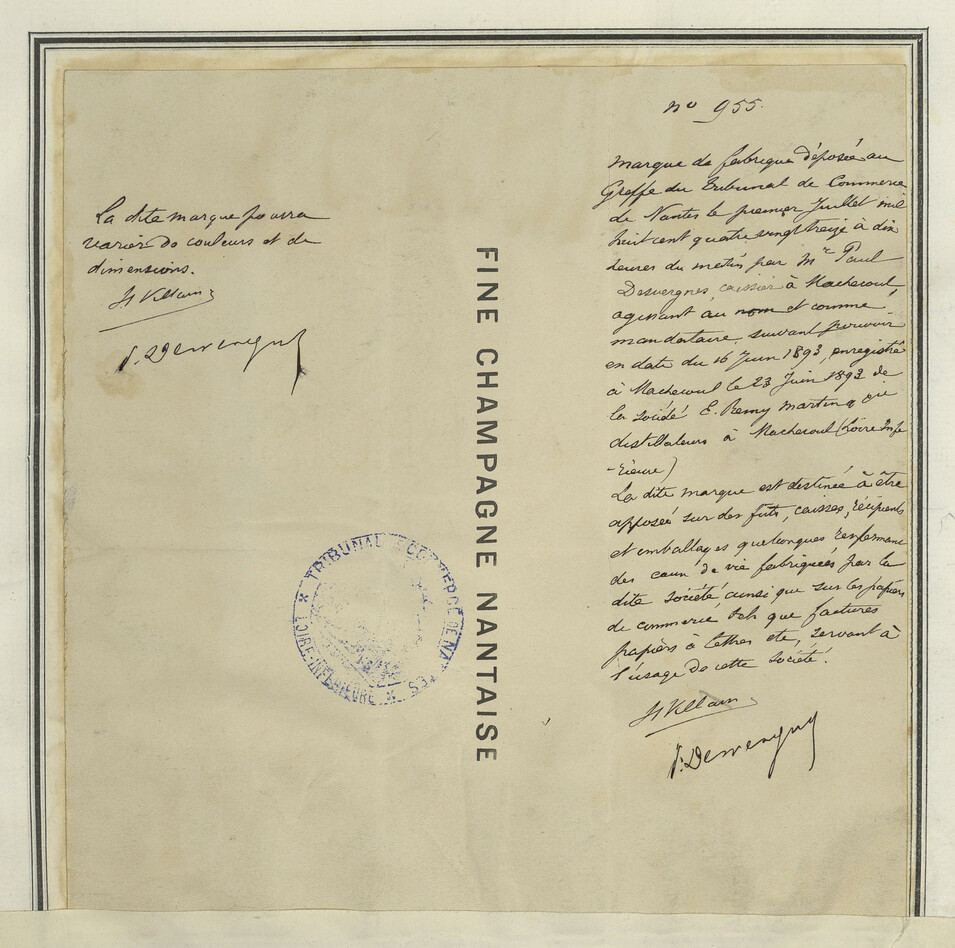 La dite marque pourra
varier de couleurs et de
dimensions.
H Villain
P. Desvergnes
FINE CHAMPAGNE NANTAISE
TRIBUNAL DE COMMERCE DE NANTES
LOIRE-INFERIEURE
no 955.
Marque de fabrique déposée au
Greffe du Tribunal de Commerce
de Nantes le premier Juillet mil
huit cent quatre vingt treize à dix
heures du matin par Mr Paul
Desvergnes, caissier à Machecoul,
agissant au nom et comme
mandataire, suivant pouvoir
en date du 16 Juin 1893, enregistré
à Machecoul le 23 Juin 1893 de
la société E. Remy Martin & Cie
distillateurs à Machecoul (Loire Infé
-rieure)
La dite marque est destinée à être
apposée sur des fûts, caisses, récipients
et emballages quelconques renfermant
des eaux de vie fabriquées par la
dite société ainsi que sur les papiers
de commerce tels que factures
papiers à lettres etc, servant à
l'usage de cette société.
H Villain
P. Desvergnes